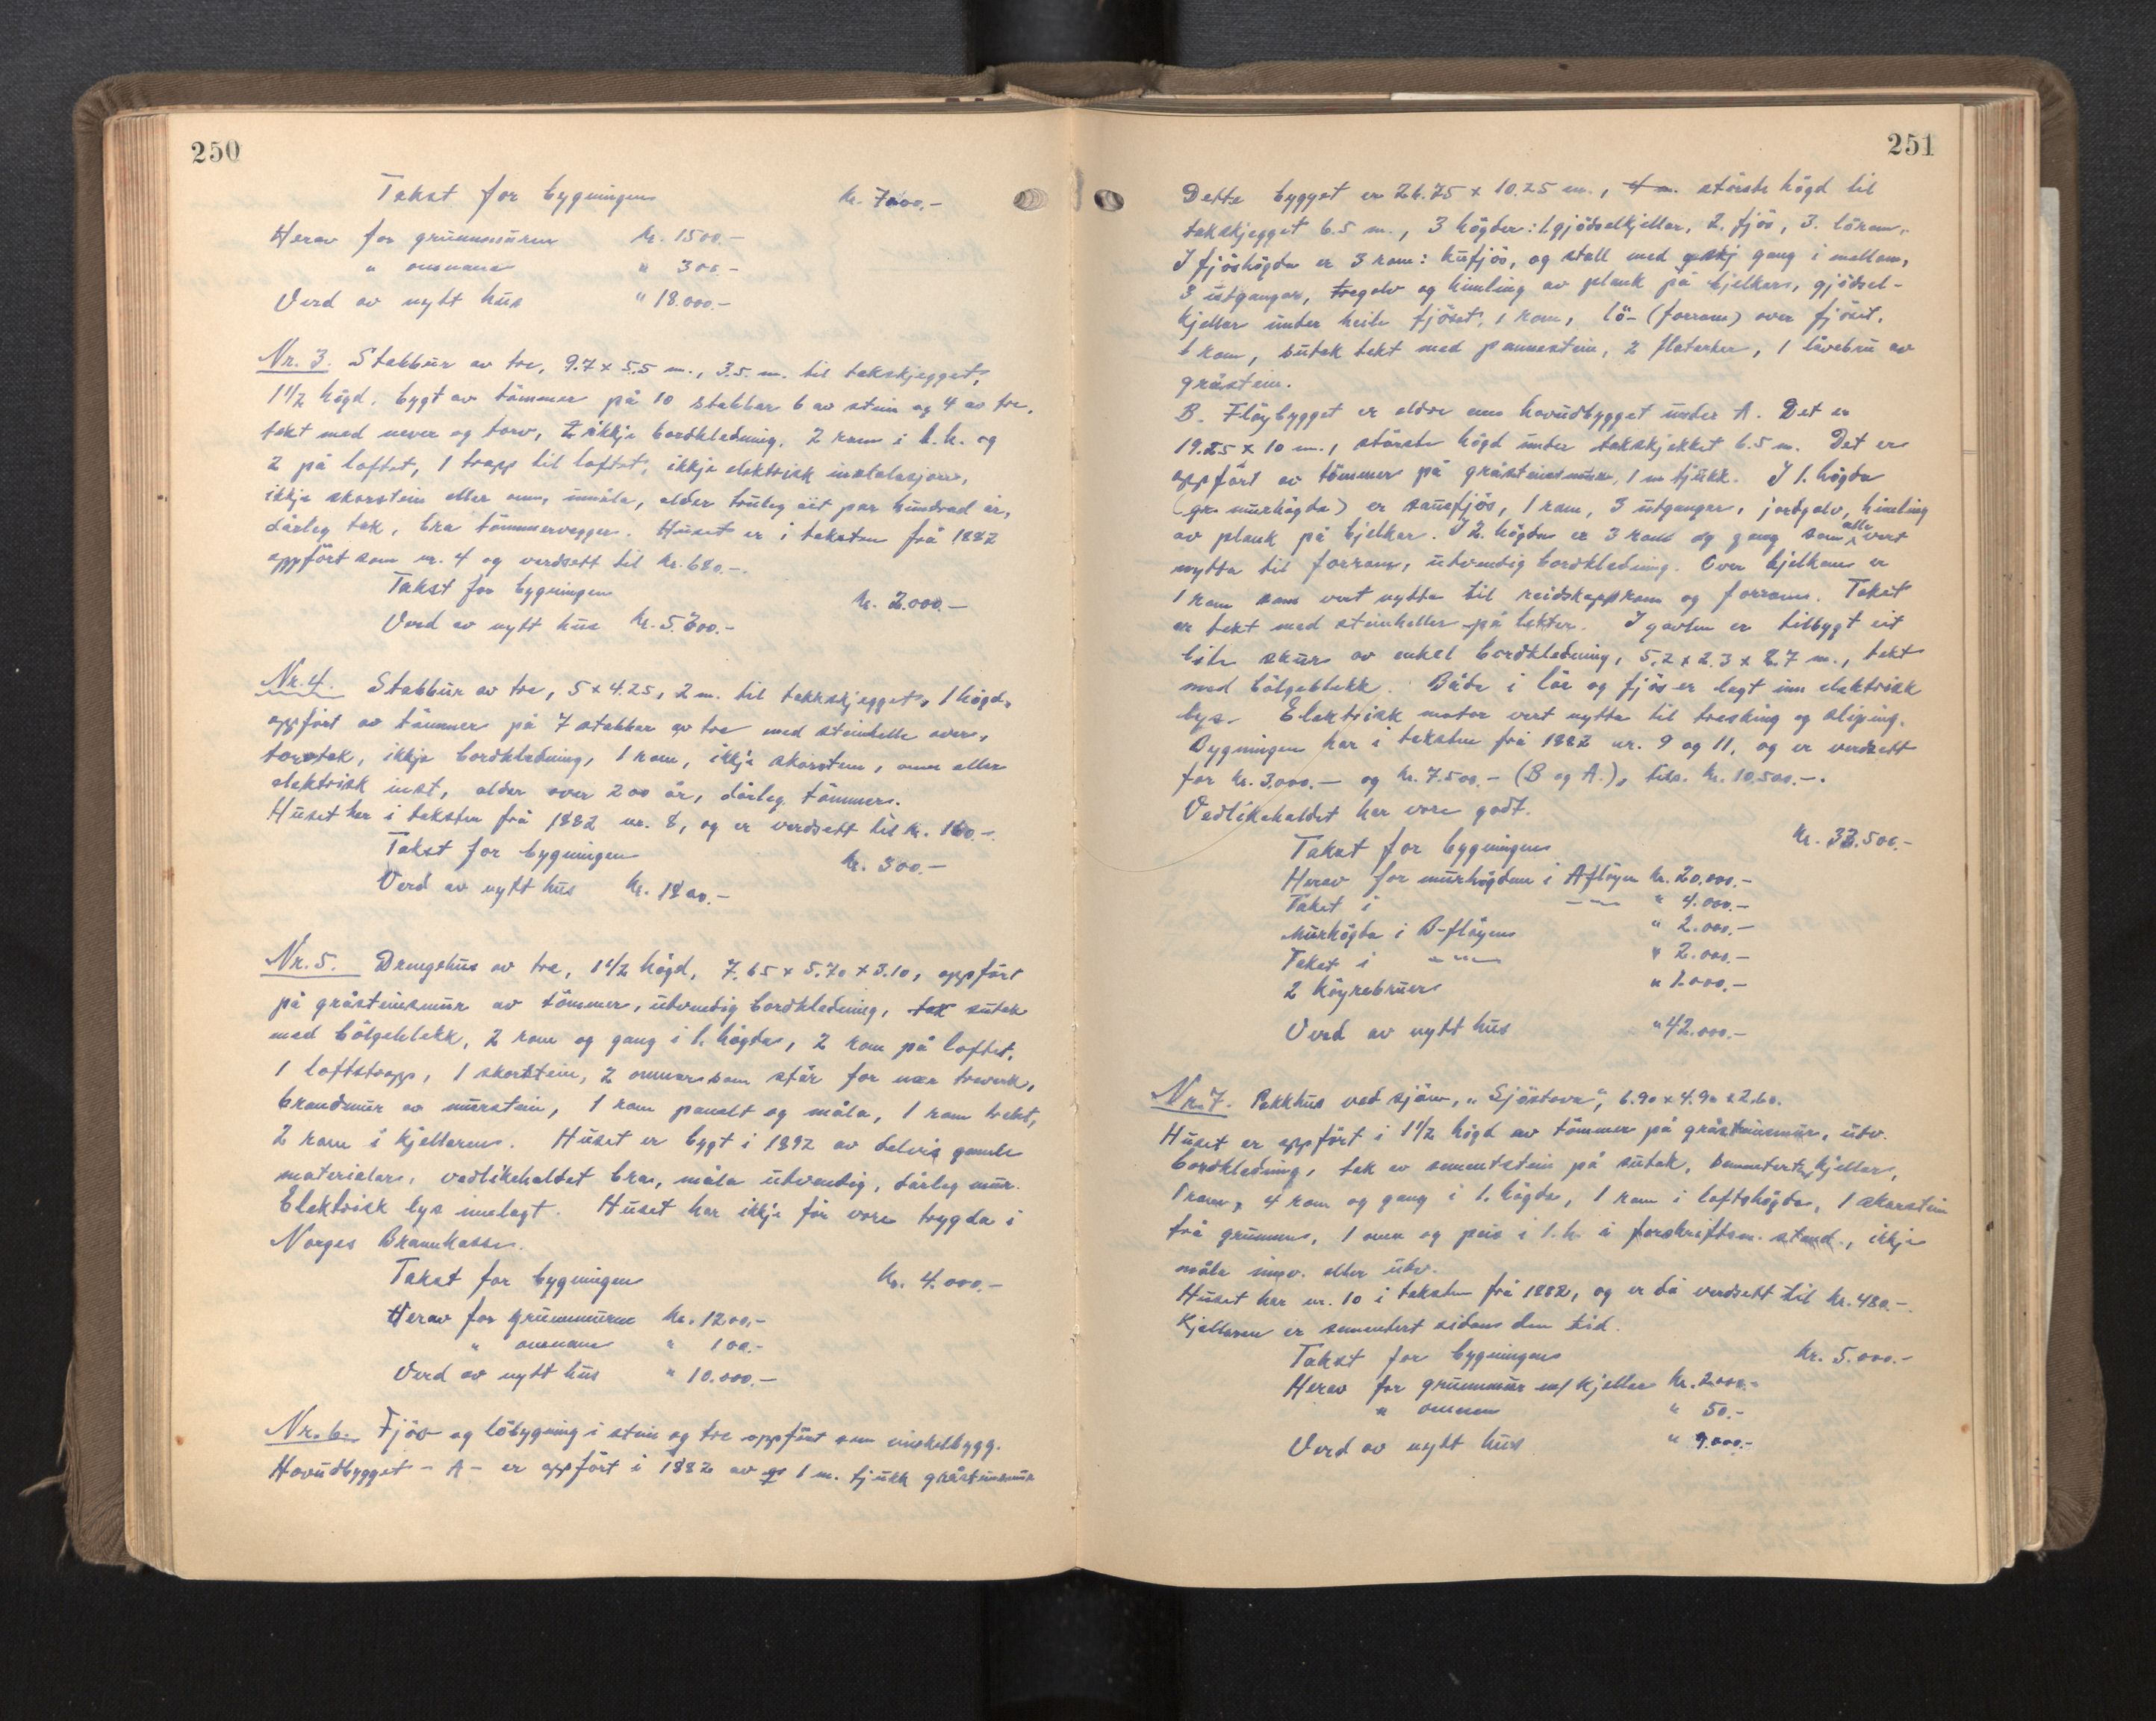 250
Takst for bygningen kr. 7000.-
Herav for grunnmuren kr. 1500.-
" omnane " 300.-
Verd av nytt hus " 18.000.-
Nr. 3. Stabbur av tre, 9.7 x 5.5 m., 3.5. m. til takskjegget,
1 1/2 högd, bygt av tömmer på 10 stabbar 6 av stein og 4 av tre,
tekt med never og torv, ikkje bordkledning, 2 rom i 1. h. og
2 på loftet, 1 trapp til loftet, ikkje elektrisk installasjon,
ikkje skorstein eller omn, umåla, alder truleg eit par hundrad år,
dårleg tak, bra tömmervegger. Huset er i taksten frå 1882
oppfört som nr. 4 og verdsett til kr. 680.-.
Takst for bygningen kr. 2.000.-
Verd av nytt hus kr. 5.200.-
Nr. 4. Stabbur av tre, 5 x 4.25, 2 m. til takskjegget, 1 högd,
oppfört av tömmer på 7 stabbar av tre med steinhelle over,
torvtak, ikkje bordkledning, 1 rom, ikkje skorstein, omn eller
elektrisk inst, alder over 200 år, dårleg tömmer.
Huset har i taksten frå 1882 nr. 8, og er verdsett til kr. 160.-.
Takst for bygningen kr. 300.-
Verd av nytt hus kr. 1200.-
Nr. 5. Drengehus av tre, 1 1/2 högd, 7.65 x 5.70 x 3.10, oppfört
på gråsteinsmur av tömmer, utvendig bordkledning, tak sutak
med bölgeblekk, 2 rom og gang i 1. högda, 2 rom på loftet,
1 loftstrapp, 1 skorstein, 2 omnar som står for nær treverk,
brandmur av murstein, 1 rom panelt og måla, 1 rom trekt,
2 rom i kjellaren. Huset er bygt i 1892 av delvis gamle
materialer, vedlikehaldet bra, måla utvendig, dårleg mur.
Elektrisk lys innlagt. Huset har ikkje för vore trygda i
Norges Brannkasse.
Takst for bygningen kr. 4.000.-
Herav for grunnmuren kr. 1200.-
" omnane " 100.-
Verd av nytt hus " 10.000.-
Nr. 6. Fjös og löbygning i stein og tre oppfört som vinkelbygg.
Hovudbygget - A - er oppfört i 1882 av 1 m. tjukk gråsteinsmur
251
Dette bygget er 26.75 x 10.25 m., största högd til
takskjegget 6.5 m., 3 högder: 1. gjödselkjellar, 2. fjös, 3. lörom.
I fjöshögda er 3 rom: kufjös, og stall med gang i mellom,
3 utgangar, tregolv og himling av plank på bjelkar, gjödsel-
kjellar under heile fjöset, 1 rom, lö- (forrom) over fjöset,
6 rom, sutak tekt med pannestein, 2 , 1 låvebru av
gråstein.
B. Flöybygget er eldre enn hovudbygget under A. Det er
19.25 x 10 m., största högd under takskjekket 6.5 m. Det er
oppfört av tömmer på gråsteinsmur, 1 m tjukk. I 1. högda
(gr. murhögda) er sauefjös, 1 rom, 3 utgangar, jordgolv, himling
av plank på bjelkar. I 2. högda er 3 rom og gang som alle vert
nytta til forrom, utvendig bordkledning. Over bjelkane er
1 rom som vert nytta til reidskapsrom og forrom. Taket
er tekt med steinheller på lekter. I gavlen er tilbygt eit
lite skur av enkel bordkledning, 5.2 x 2.3 x 2.7 m., tekt
med bölgeblekk. Både i löe og fjös er lagt inn elektrisk
lys. Elektrisk motor vert nytta til tresking og sliping.
Bygningen har i taksten frå 1882 nr. 9 og 11, og er verdsett
for kr. 3.000.- og kr. 7.500.- (B og A.), tils. kr. 10.500.-.
Vedlikehaldet har vore godt.
Takst for bygningen kr. 33.500.-
Herav for murhögdene i A flöyen kr. 20.000.-
Taket i -"- " 4.000.-
Murhögda i B-flöyen " 2.000.-
Taket i -"- " 2.000.-
2 köyrebruer " 1.000.-
Verd av nytt hus " 42.000.-
Nr. 7. Pakkhus ved sjöen, "Sjöstova", 6.90 x 4.90 x 2.60.
Huset er oppfört i 1 1/2 högd av tömmer på gråsteinsmur, utv.
bordkledning, tak av sementstein på sutak, sementert kjellar,
1 rom, 4 rom og gang i 1. högda, 1 rom i loftshögda, 1 skorstein
frå grunnen, 1 omn og peis i 1. h. i forskriftsm. stand, ikkje
måla innv. eller utv.
Huset har nr. 10 i taksten frå 1882, og er då verdsett til kr. 480.-.
Kjellaren er sementert sidan den tid.
Takst for bygningen kr. 5.000.-
Herav for grunnmur m/ kjellar kr. 2000.-
" omnen " 50.-
Verd av nytt hus " 9.000.-